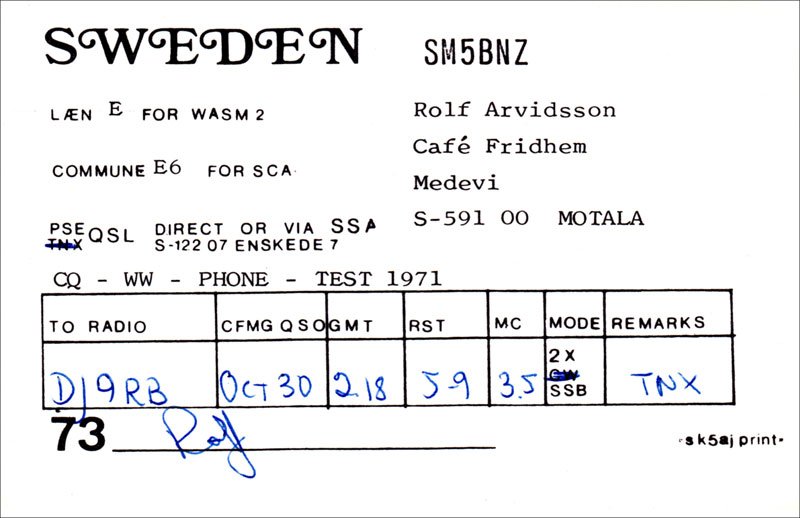 SWEDEN
SM5BNZ
LÆN E FOR WASM 2
COMMUNE E6 FOR SCA
Rolf Arvidsson
Café Fridhem
Medevi
S-591 00 MOTALA
PSE
TNX
QSL DIRECT OR VIA SSA
S-122 07 ENSKEDE 7
CQ - WW - PHONE - TEST 1971
TO RADIO CFMG QSO GMT RST MC MODE REMARKS
DJ9RB OCT 30 2.18 5-9 3.5 2X CW SSB TNX
73 Rolf
sk5aj print